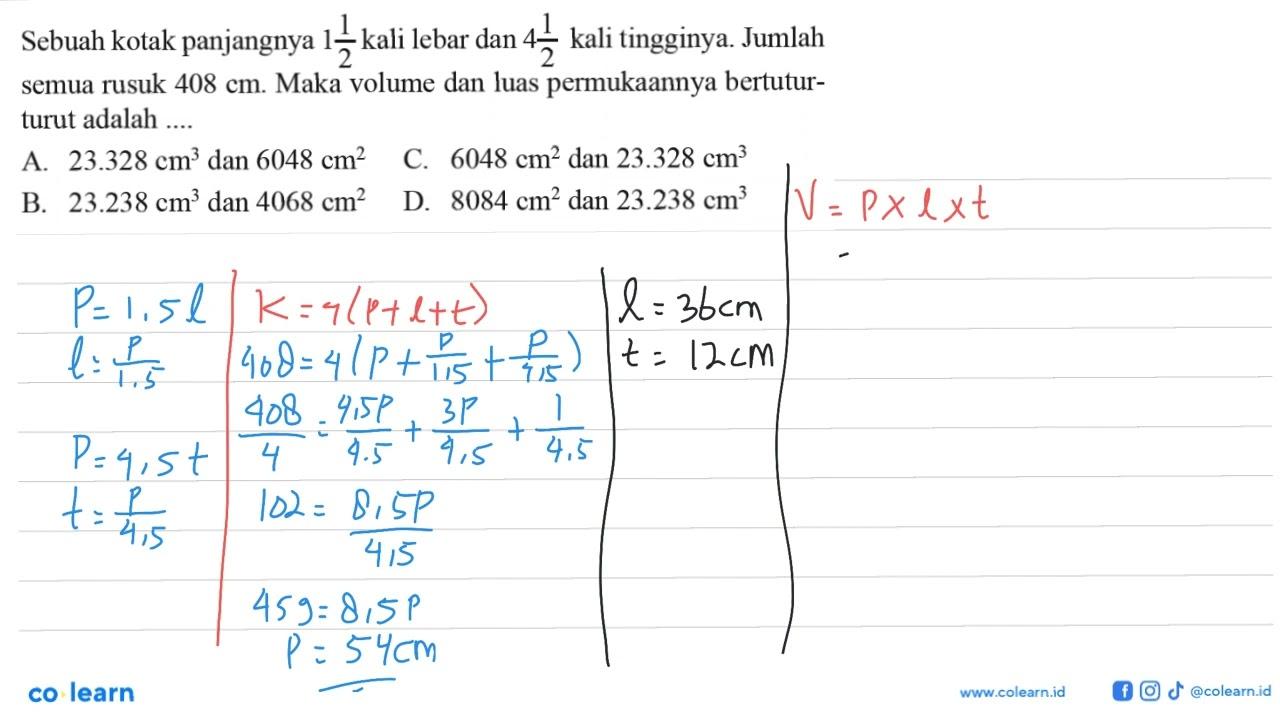 Sebuah kotak panjangnya 1 1/2 kali lebar dan 4 1/2 kali tingginya. Jumlah
semua rusuk 408 cm. Maka volume dan luas permukaannya bertutur-
turut adalah ....
A. 23.328 cm³ dan 6048 cm² C. 6048 cm² dan 23.328 cm³
B. 23.238 cm³ dan 4068 cm² D. 8084 cm² dan 23.238 cm³
P = 1,5 l
l = P/1.5
P = 4,5 t
t = P/4,5
K = 4(P + l + t)
408 = 4(P + P/1,5 + P/4,5)
408/4 = 4,5P/4.5 + 3P/4,5 + 1/4,5
102 = 8,5P/4,5
459 = 8,5P
P = 54 cm
l = 36 cm
t = 12 cm
V = P x l x t
-
co learn
www.colearn.id
@colearn.id